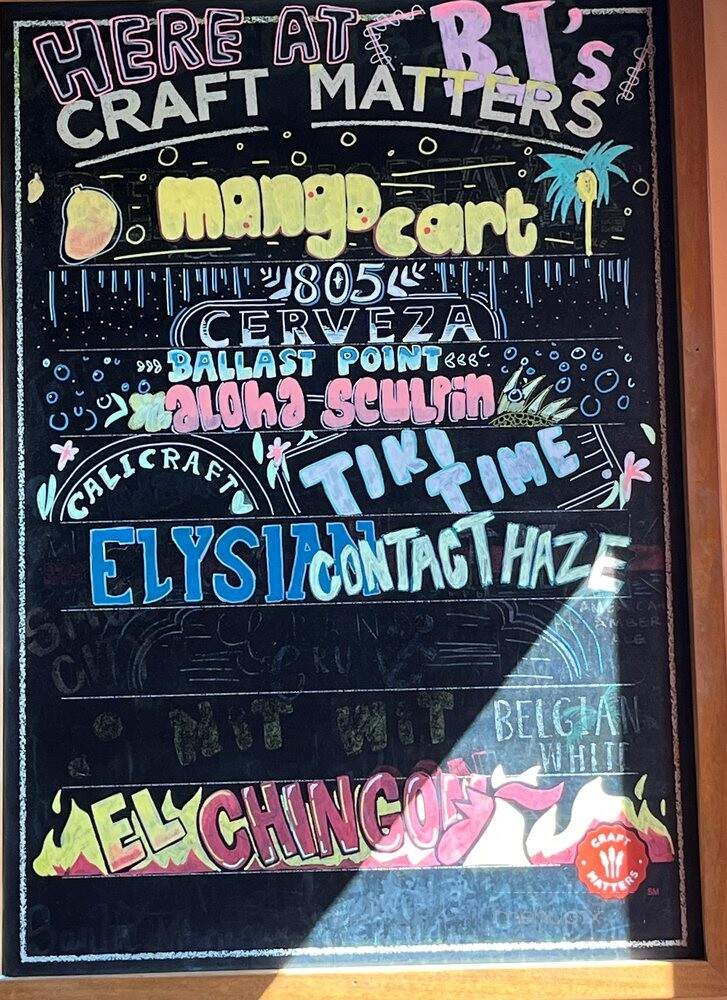 HERE AT BJ's
CRAFT MATTERS
mango cart
805
CERVEZA
BALLAST POINT
aloha sculpin
CALICRAFT TIKI TIME
ELYSIAN CONTACT HAZE
AMERICAN
AMBER
ALE
NIT WIT BELGIAN
WHITE
EL CHINGON
CRAFT
MATTERS
SM